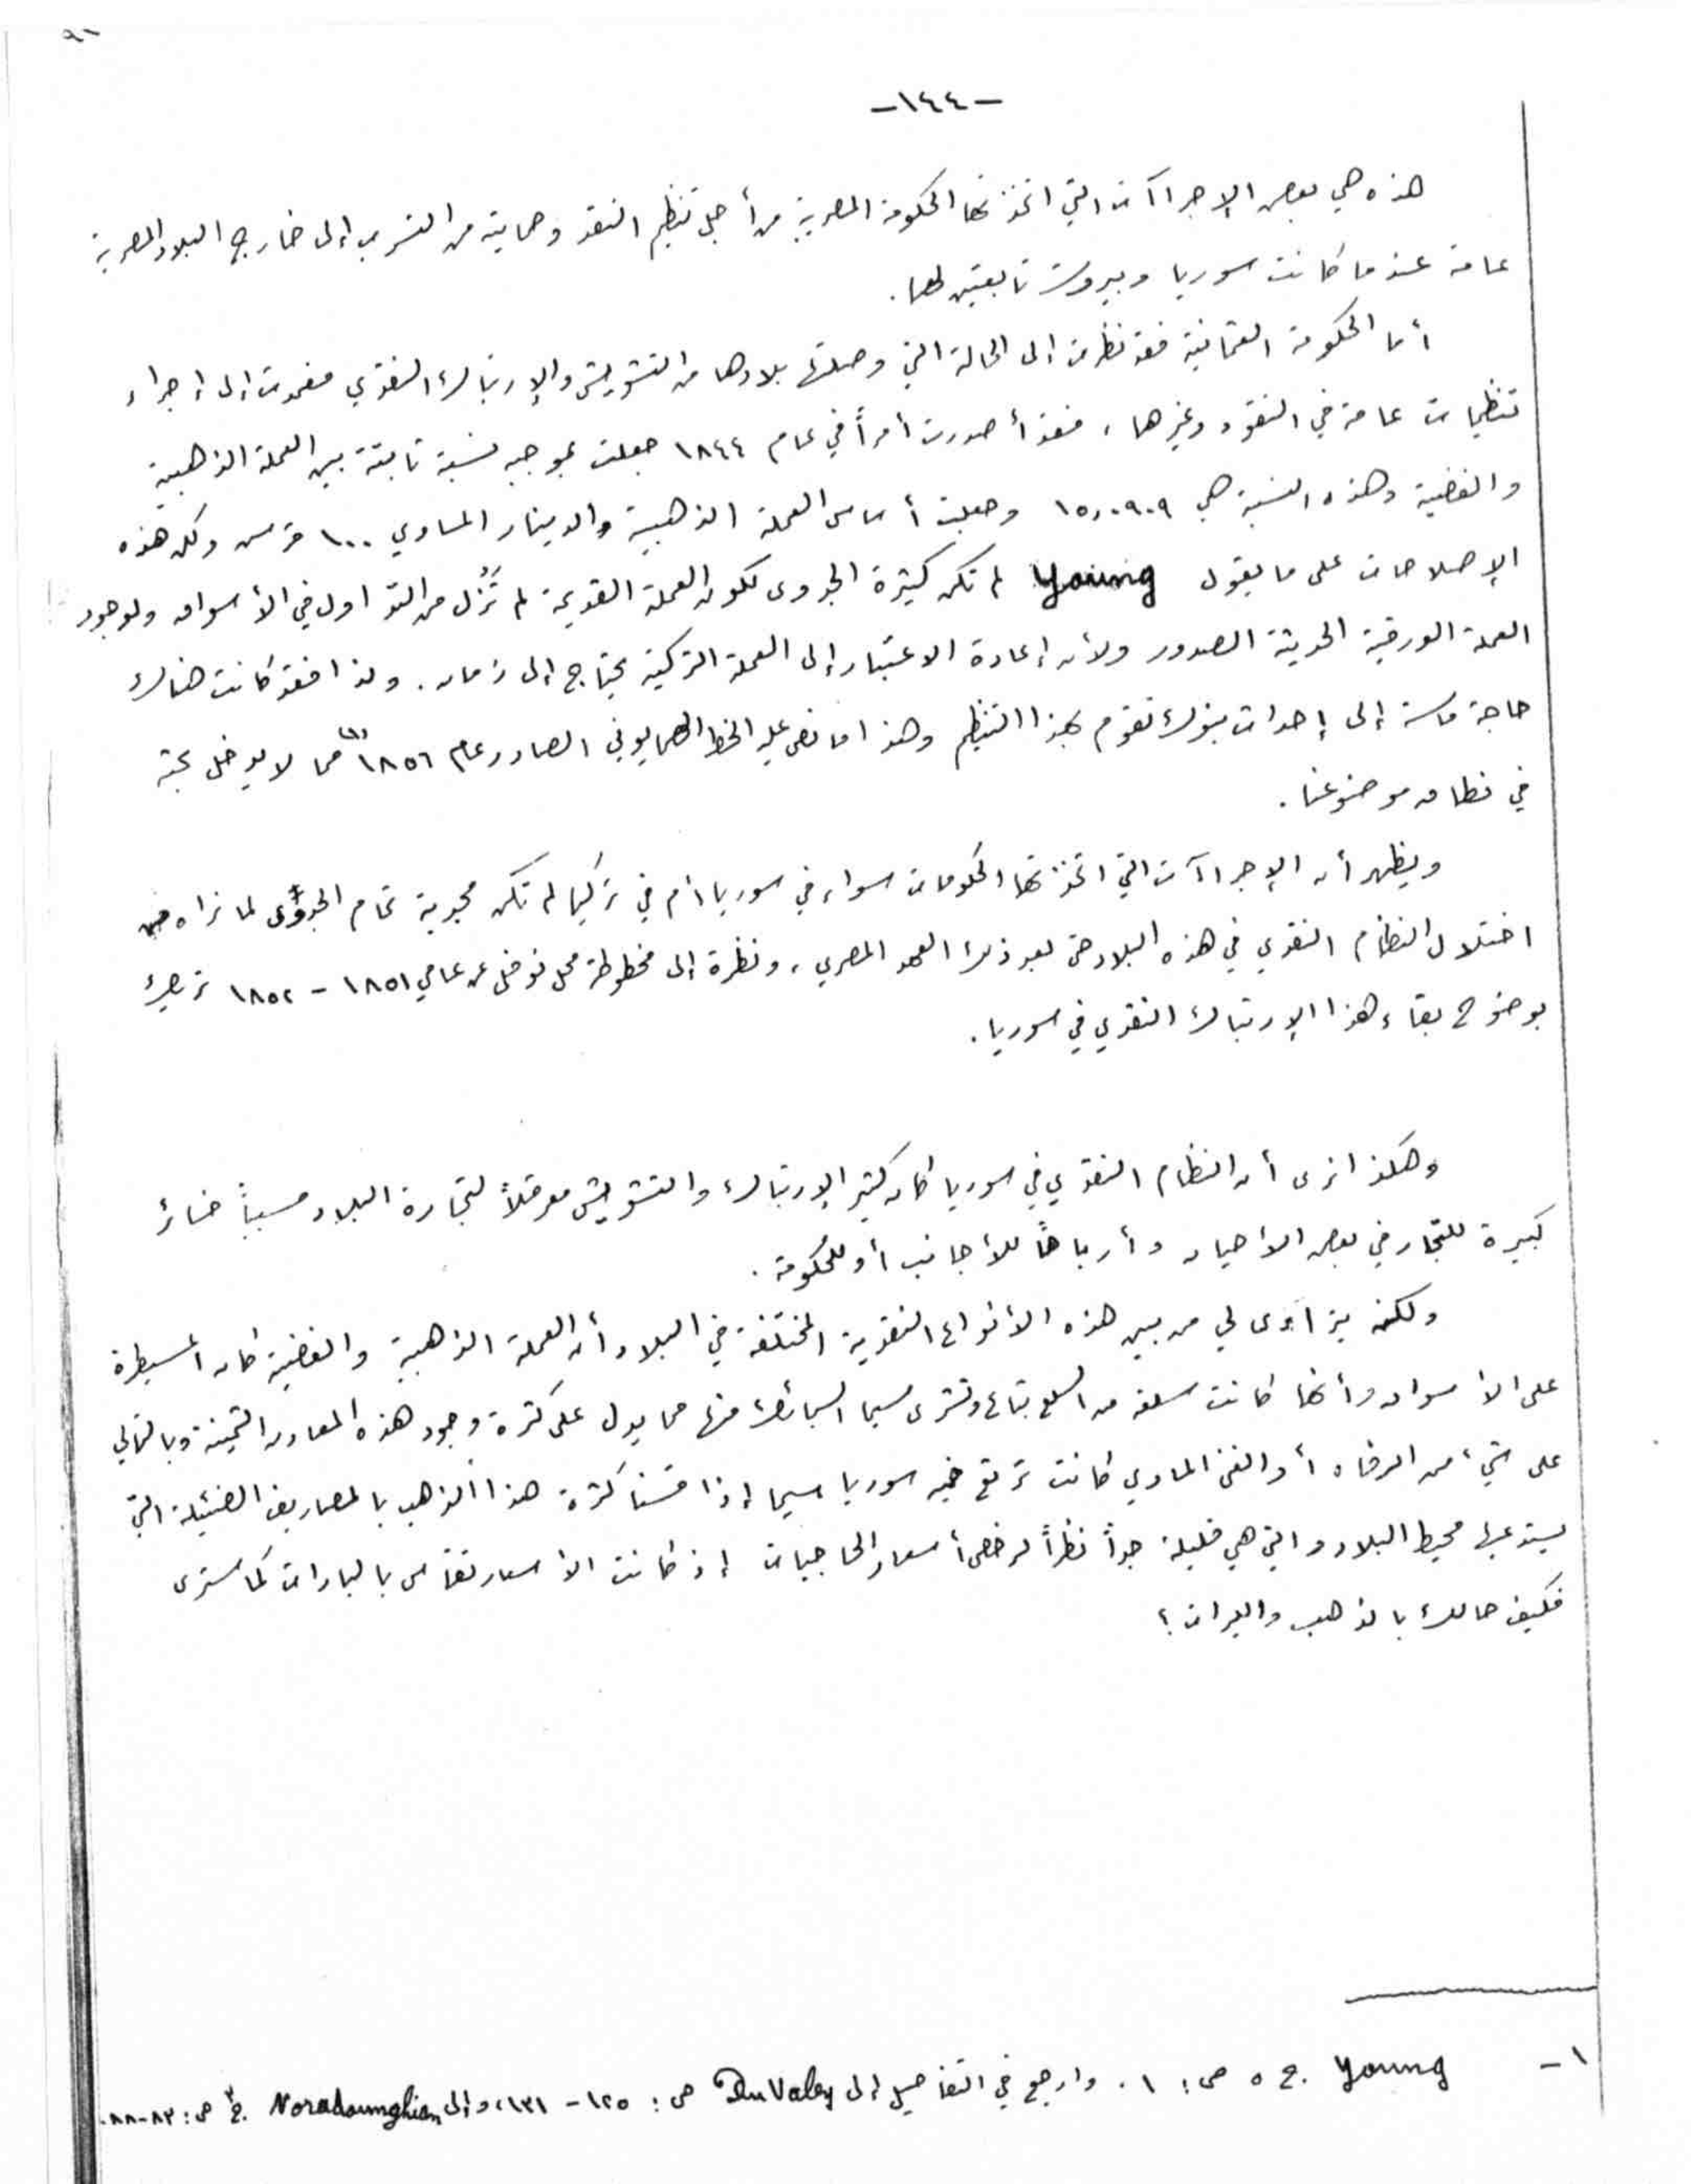 -١٤٤-
هذه هي بعض الإجراآت التي اتخذتها الحكومة المصرية من أجل تنظيم النقد وحمايته من التسرب إلى خارج البلاد المصرية
عامة عندما كانت سوريا وبيروت تابعتين لها.
أما الحكومة العثمانية فقد نظرت إلى الحالة التي وصلتها بلادها من التشويش والإرتباك النقدي فعمدت إلى إجراء
تنظيمات عامة في النقود وغيرها، فقد أصدرت أمراً في عام ١٨٤٤ جعلت بموجبه نسبة ثابتة بين العملة الذهبية
والفضية وهذه النسبة هي ١٥,٠٩٠٩ وجعلت أساس العملة الذهبية والدينار المساوي ١٠٠ قرش ولكن هذه
الإصلاحات على ما يقول Young لم تكن كثيرة الجدوى لكون العملة القديمة لم تُزل من التداول في الأسواق ولوجود
العملة الورقية الحديثة الصدور ولأن إعادة الاعتبار إلى العملة التركية يحتاج إلى زمان. ولذا فقد كانت هناك
حاجة ماسة إلى إحداث بنوك تقوم بهذا التنظيم وهذا ما نص عليه الخط الهمايوني الصادر عام ١٨٥٦ (١) مما لا يدخل بحثه
في نطاق موضوعنا.
ويظهر أن الإجراآت التي اتخذتها الحكومات سواء في سوريا أم في تركيا لم تكن مجدية تمام الجدوى لما نراه من
اختلال النظام النقدي في هذه البلاد حتى بعد ذلك العهد المصري، ونظرة إلى مخطوطة محل نوفل عن عامي ١٨٥١ - ١٨٥٢ تريك
بوضوح بقاء هذا الإرتباك النقدي في سوريا.
وهكذا نرى أن النظام النقدي في سوريا كان كثير الإرتباك والتشويش معرقلاً لتجارة البلاد مسبباً خسائر
كبيرة للتجار في بعض الأحيان وأرباحاً للأجانب أو للحكومة.
ولكن يتراءى لي من بين هذه الأنواع النقدية المختلفة في البلاد أن العملة الذهبية والفضية كانت المسيطرة
على الأسواق وأنها كانت سلعة من السلع تباع وتشرى سيما السبائك منها مما يدل على كثرة وجود هذه المعادن الثمينة وبالتالي
على شيء من الرفاه أو الغنى المادي كانت ترتع فيه سوريا سيما إذا قسنا كثرة هذا الذهب بالمصاريف الضئيلة التي
يستدعيها محيط البلاد والتي هي قليلة جداً نظراً لرخص أسعار الحاجيات إذ كانت الأسعار تقاس بالبارات كما سنرى
فكيف حالك بالذهب والليرات؟
١ - Young ج. ٥ ص: ١. وارجع في التفاصيل إلى Du Valay ص: ١٢٥ - ١٣١، وإلى Noradounghian ج. ٣ ص: ٨٣-٨٨.